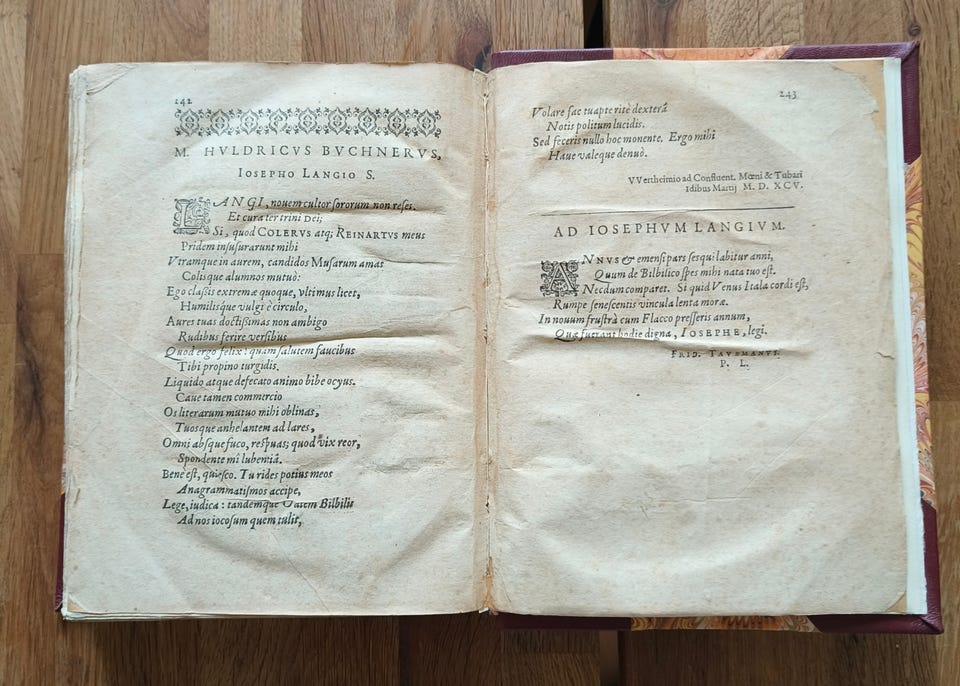 242
M. HVLDRICVS BVCHNERVS,
IOSEPHO LANGIO S.
LANGI, nouem cultor sororum non reses.
Et cura ter trini DEI;
Si, quod COLERVS atq; REINARTVS meus
Pridem insusurarunt mihi
Vtramque in aurem, candidos Musarum amas
Coltisque alumnos mutuò:
Ego classis extremæ quoque, vltimus licet,
Humilisque vulgi è circulo,
Aures tuas doctissimas non ambigo
Rudibus ferire versibus
Quod ergo felix: quam salutem faucibus
Tibi propino turgidis.
Liquido atque defecato animo bibe ocyus.
Caue tamen commercio
Os literarum mutuo mihi oblinas,
Tuosque anhelantem ad lares,
Omni absque fuco, respuas; quod vix reor,
Spondente mî lubentiâ.
Benè est, quiesco. Tu rides potius meos
Anagrammatismos accipe,
Lege, iudica: tandemque Vatem Bilbilis
Ad nos iocosum quem tulit,
243
Volare fac tuapte ritè dexterâ
Notis politum lucidis.
Sed feceris nullo hoc monente. Ergo mihi
Haue valeque denuò.
VVertheimio ad Confluent. Mœni & Tubari
Idibus Martij M. D. XCV.
AD IOSEPHVM LANGIVM.
ANNVS & emensi pars sesqui labitur anni,
Quum de Bilbilico spes mihi nata tuo est.
Necdum comparet. Si quid Venus Itala cordi est,
Rumpe senescentis vincula lenta moræ.
In nouum frustrà cum Flacco presseris annum,
Quæ fuerant hodie digna, IOSEPHE, legi.
FRID. TAVBMANVS.
P. L.